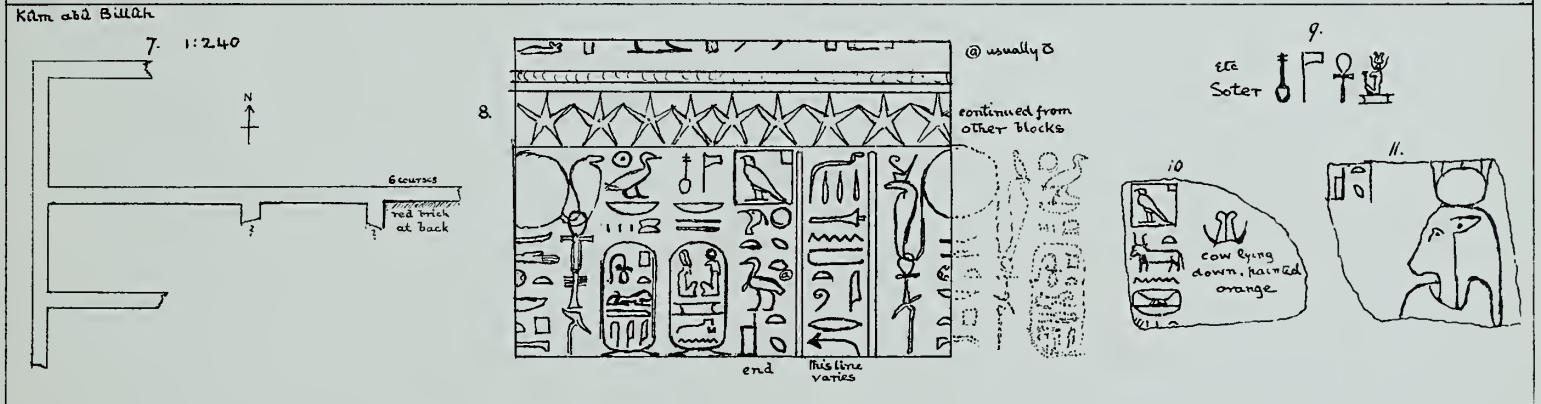 Kûm abû Billûh
7. 1:240
N
6 courses
red brick
at back
?
?
8.
@ usually ō
continued from
other blocks
@
end
this line
varies
9.
etc
Soter
10
cow lying
down, painted
orange
11.